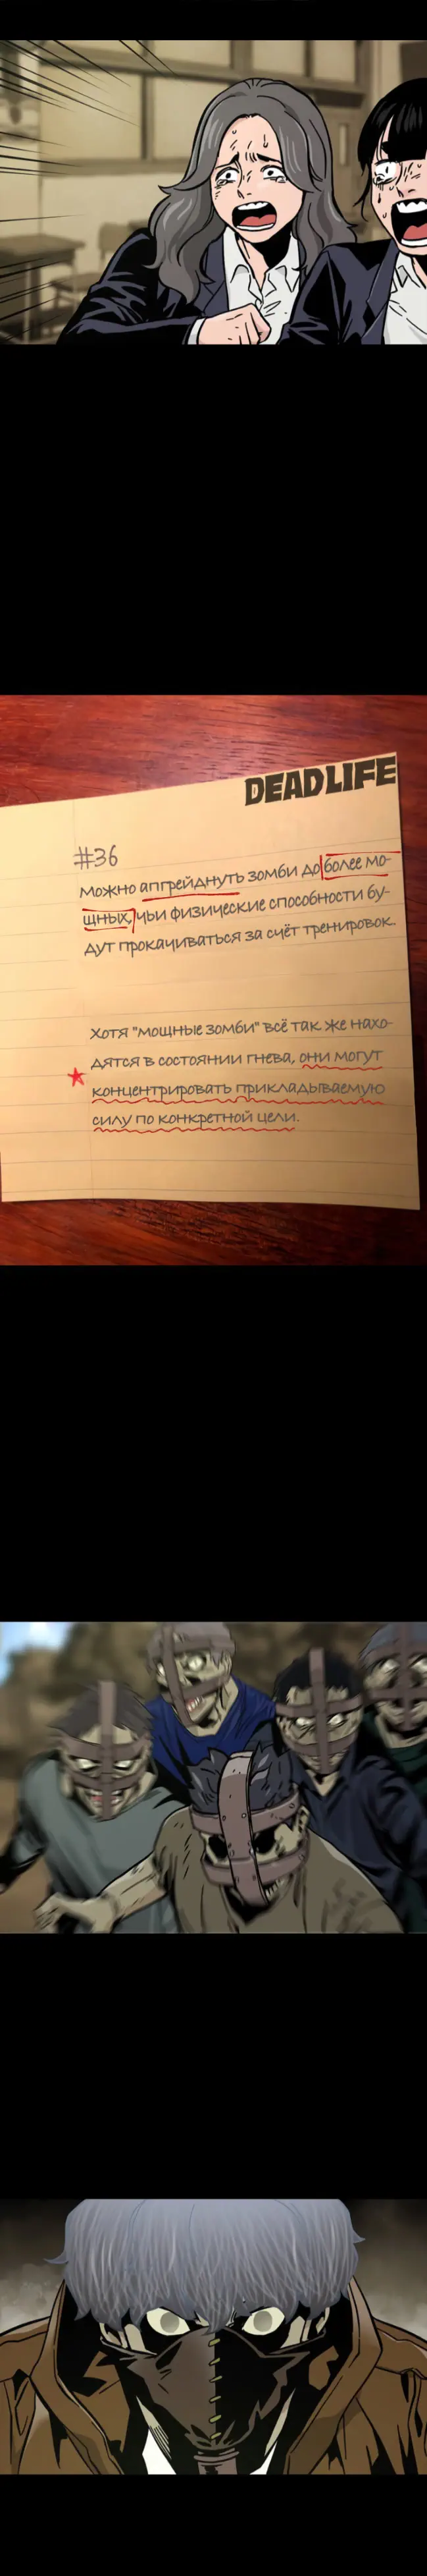 DEADLIFE
#36
можно апгрейднуть зомби до более мо-
щных, чьи физические способности бу-
дут прокачиваться за счёт тренировок.
Хотя "мощные зомби" всё так же нахо-
дятся в состоянии гнева, они могут
концентрировать прикладываемую
силу по конкретной цели.